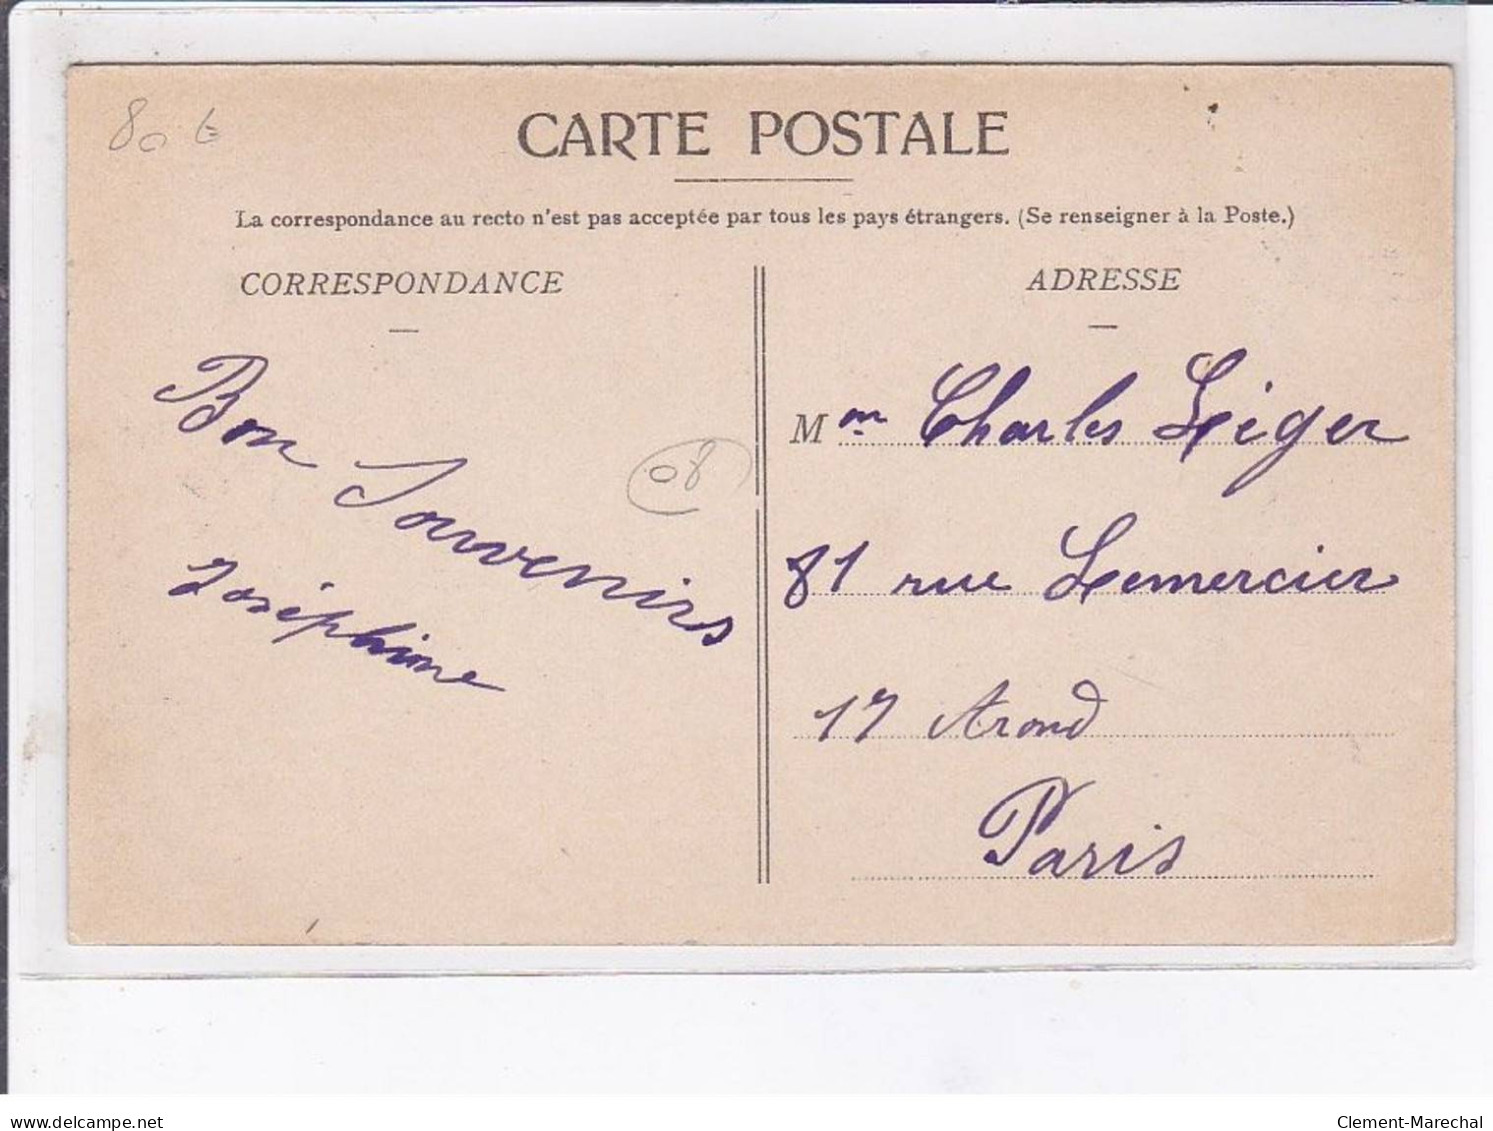 80 €
CARTE POSTALE
La correspondance au recto n'est pas acceptée par tous les pays étrangers. (Se renseigner à la Poste.)
CORRESPONDANCE
Bon Souvenirs
Joséphine
08
ADRESSE
Mon Charles Léger
81 rue Lemercier
17 Arond
Paris
www.delcampe.net
Clement-Marechal